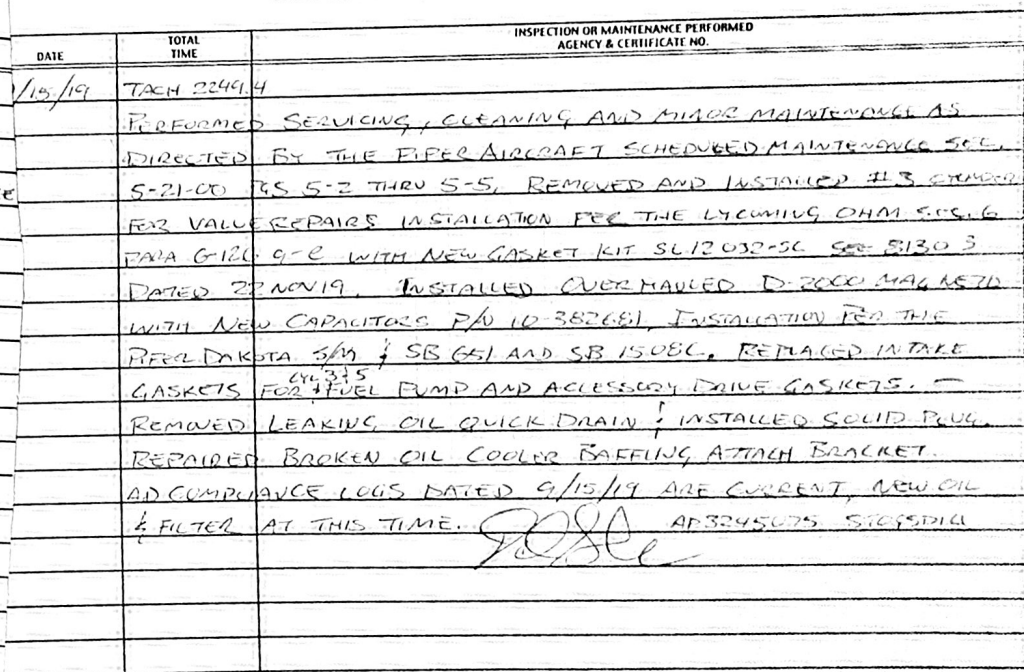 INSPECTION OR MAINTENANCE PERFORMED
DATE TOTAL TIME AGENCY & CERTIFICATE NO.
/15/19 TACH 2249.4
PERFORMED SERVICING, CLEANING AND MINOR MAINTENANCE AS
DIRECTED BY THE PIPER AIRCRAFT SCHEDULED MAINTENANCE SEC.
5-21-00 PGS 5-2 THRU 5-5. REMOVED AND INSTALLED #3 CYLINDER
FOR VALVE REPAIRS INSTALLATION PER THE LYCOMING OHM SEC. 6
PARA 6-12C. 9-e WITH NEW GASKET KIT SL12032-SC SEE 8130 3
DATED 22 NOV 19. INSTALLED OVERHAULED D-2000 MAGNETO
WITH NEW CAPACITORS P/N 10-382681. INSTALLATION PER THE
PIPER DAKOTA S/M & SB 651 AND SB 1508C. REPLACED INTAKE
GASKETS FOR CYL 3 & 5 & FUEL PUMP AND ACCESSORY DRIVE GASKETS. —
REMOVED LEAKING OIL QUICK DRAIN & INSTALLED SOLID PLUG.
REPAIRED BROKEN OIL COOLER BAFFLING ATTACH BRACKET.
AD COMPLIANCE LOGS DATED 9/15/19 ARE CURRENT, NEW OIL
& FILTER AT THIS TIME. AP3245075 STOGSDILL